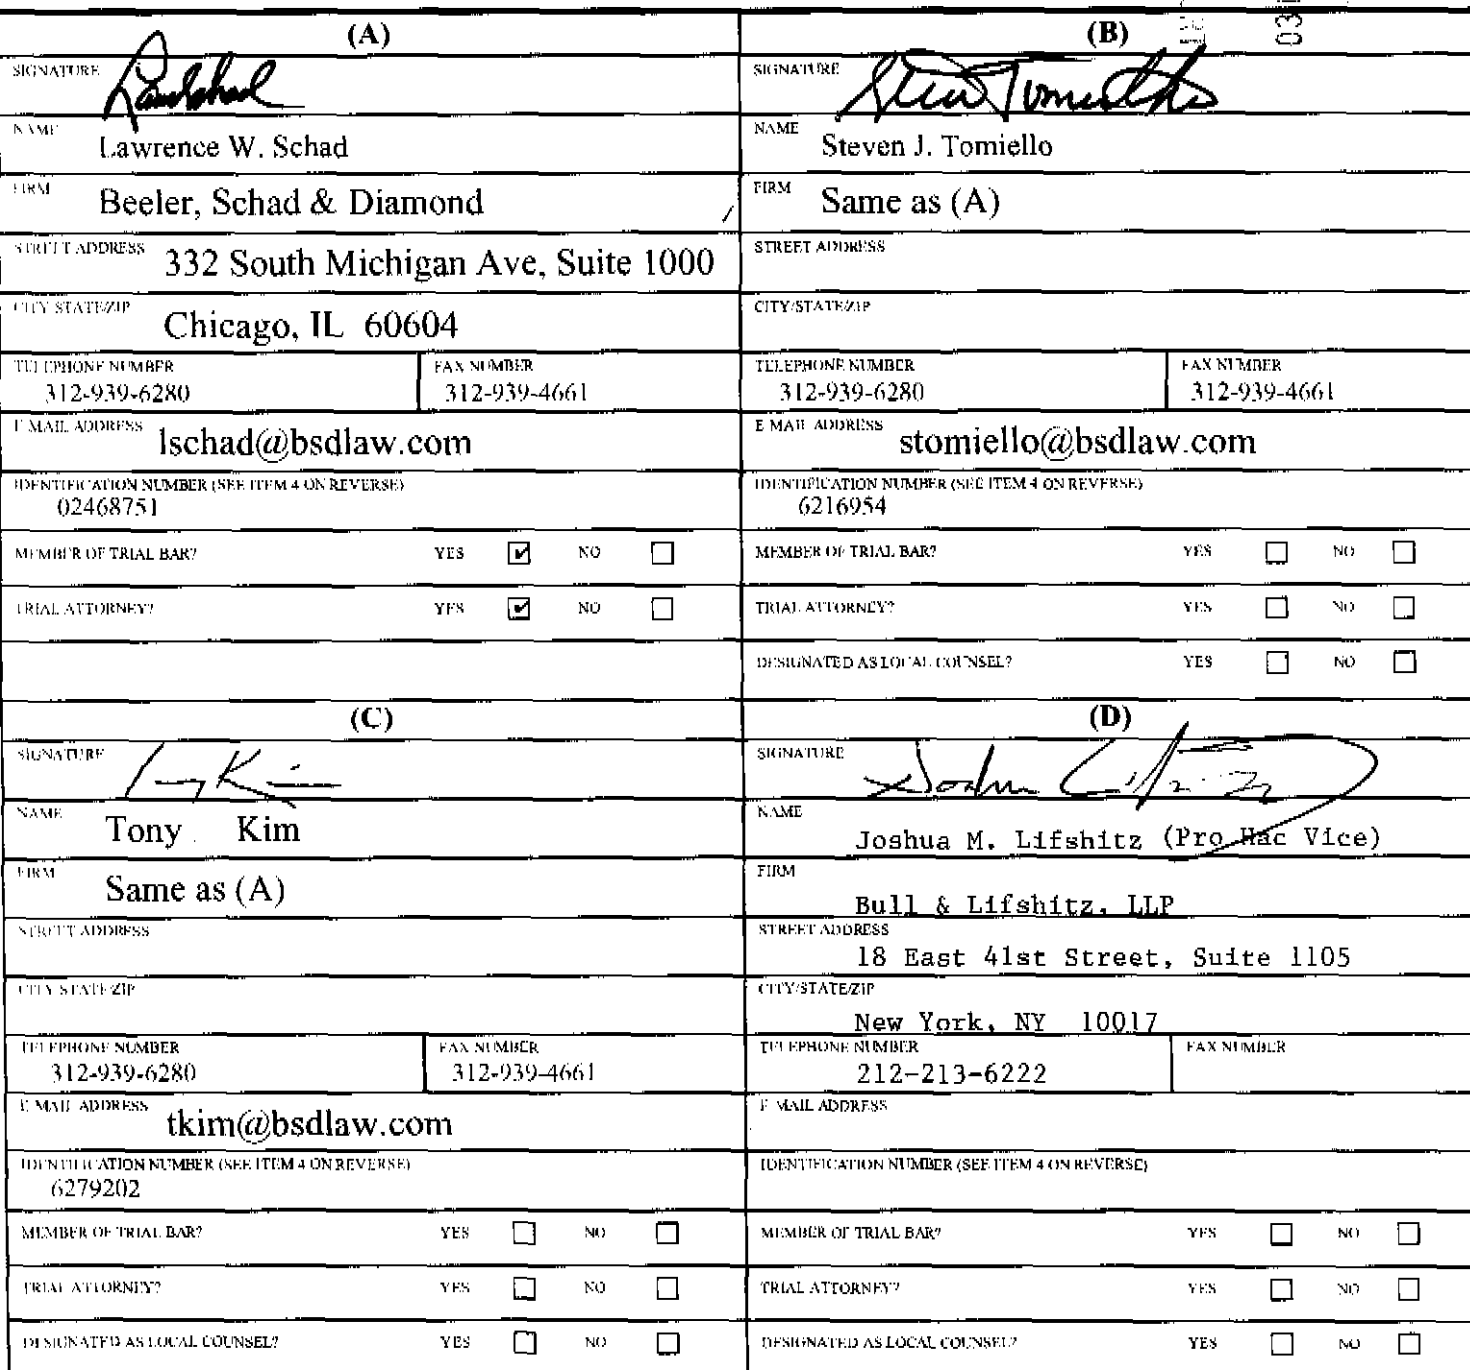 (A)
SIGNATURE
NAME
Lawrence W. Schad
FIRM
Beeler, Schad & Diamond
STREET ADDRESS
332 South Michigan Ave, Suite 1000
CITY/STATE/ZIP
Chicago, IL 60604
TELEPHONE NUMBER
312-939-6280
FAX NUMBER
312-939-4661
E-MAIL ADDRESS
lschad@bsdlaw.com
IDENTIFICATION NUMBER (SEE ITEM 4 ON REVERSE)
02468751
MEMBER OF TRIAL BAR? YES ☑ NO ☐
TRIAL ATTORNEY? YES ☑ NO ☐
(B)
SIGNATURE
Steven Tomiello
NAME
Steven J. Tomiello
FIRM
Same as (A)
STREET ADDRESS
CITY/STATE/ZIP
TELEPHONE NUMBER
312-939-6280
FAX NUMBER
312-939-4661
E-MAIL ADDRESS
stomiello@bsdlaw.com
IDENTIFICATION NUMBER (SEE ITEM 4 ON REVERSE)
6216954
MEMBER OF TRIAL BAR? YES ☐ NO ☐
TRIAL ATTORNEY? YES ☐ NO ☐
DESIGNATED AS LOCAL COUNSEL? YES ☐ NO ☐
(C)
SIGNATURE
Tony Kim
NAME
Tony Kim
FIRM
Same as (A)
STREET ADDRESS
CITY/STATE/ZIP
TELEPHONE NUMBER
312-939-6280
FAX NUMBER
312-939-4661
E-MAIL ADDRESS
tkim@bsdlaw.com
IDENTIFICATION NUMBER (SEE ITEM 4 ON REVERSE)
6279202
MEMBER OF TRIAL BAR? YES ☐ NO ☐
TRIAL ATTORNEY? YES ☐ NO ☐
DESIGNATED AS LOCAL COUNSEL? YES ☐ NO ☐
(D)
SIGNATURE
NAME
Joshua M. Lifshitz (Pro Hac Vice)
FIRM
Bull & Lifshitz, LLP
STREET ADDRESS
18 East 41st Street, Suite 1105
CITY/STATE/ZIP
New York, NY 10017
TELEPHONE NUMBER
212-213-6222
FAX NUMBER
E-MAIL ADDRESS
IDENTIFICATION NUMBER (SEE ITEM 4 ON REVERSE)
MEMBER OF TRIAL BAR? YES ☐ NO ☐
TRIAL ATTORNEY? YES ☐ NO ☐
DESIGNATED AS LOCAL COUNSEL? YES ☐ NO ☐